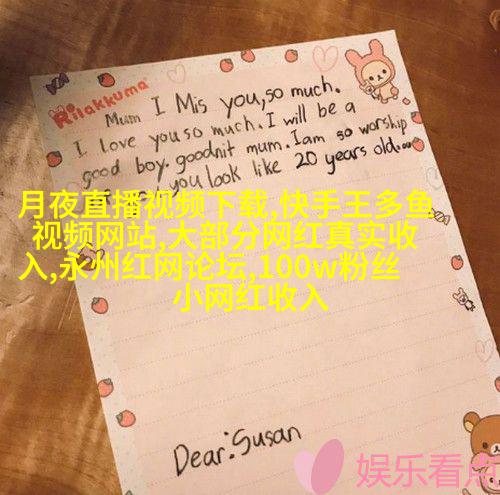 Rilakkuma
Mum I Mis you,so much.
I love you so much. I will be a
good boy. goodnit mum. I am so worship
you look like 20 years old.
月夜直播视频下载,快手王多鱼
视频网站,大部分网红真实收
入,永州红网论坛,100w粉丝
小网红收入
Dear:Susan
娱乐看点